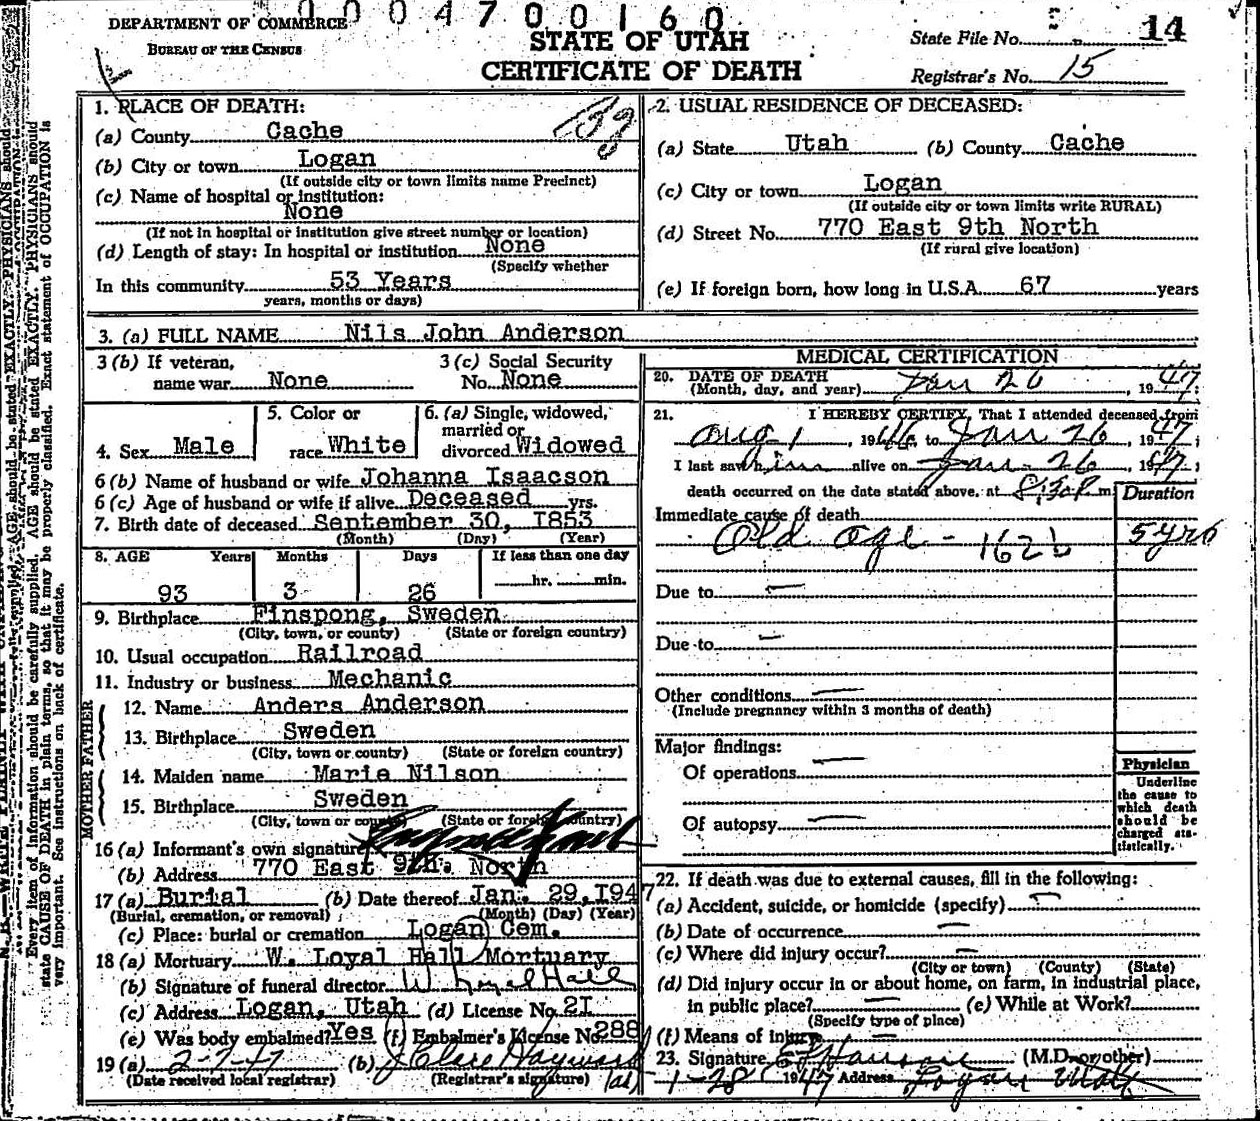 0004700160
DEPARTMENT OF COMMERCE
BUREAU OF THE CENSUS
STATE OF UTAH
CERTIFICATE OF DEATH
State File No. 14
Registrar's No. 15
1. PLACE OF DEATH:
(a) County Cache
(b) City or town Logan
(If outside city or town limits name Precinct)
(c) Name of hospital or institution:
None
(If not in hospital or institution give street number or location)
(d) Length of stay: In hospital or institution None
(Specify whether
In this community 53 Years
years, months or days)
2. USUAL RESIDENCE OF DECEASED:
(a) State Utah (b) County Cache
(c) City or town Logan
(If outside city or town limits write RURAL)
(d) Street No. 770 East 9th North
(If rural give location)
(e) If foreign born, how long in U.S.A. 67 years
3. (a) FULL NAME Nils John Anderson
3 (b) If veteran,
name war None
3 (c) Social Security
No. None
4. Sex Male
5. Color or
race White
6. (a) Single, widowed,
married or
divorced Widowed
6 (b) Name of husband or wife Johanna Isaacson
6 (c) Age of husband or wife if alive Deceased yrs.
7. Birth date of deceased September 30, I853
(Month) (Day) (Year)
8. AGE Years Months Days If less than one day
93 3 26 hr. min.
9. Birthplace Finspong, Sweden
(City, town, or county) (State or foreign country)
10. Usual occupation Railroad
11. Industry or business Mechanic
FATHER
12. Name Anders Anderson
13. Birthplace Sweden
(City, town or county) (State or foreign country)
MOTHER
14. Maiden name Marie Nilson
15. Birthplace Sweden
(City, town or county) (State or foreign country)
16 (a) Informant's own signature
(b) Address 770 East 9th. North
17 (a) Burial (b) Date thereof Jan. 29, I947
(Burial, cremation, or removal) (Month) (Day) (Year)
(c) Place: burial or cremation Logan Cem.
18 (a) Mortuary W. Loyal Hall Mortuary
(b) Signature of funeral director W. Loyal Hall
(c) Address Logan, Utah (d) License No. 2I
(e) Was body embalmed? Yes (f) Embalmer's License No. 288
19 (a) 2-7-47 (b) J Clare Hayward
(Date received local registrar) (Registrar's signature)
MEDICAL CERTIFICATION
20. DATE OF DEATH
(Month, day, and year) Jan 26, 1947;
21. I HEREBY CERTIFY, That I attended deceased from
Aug 1, 1946 to Jan 26, 1947;
I last saw him alive on Jan-26, 1947;
death occurred on the date stated above, at 8:30P m.
Duration
Immediate cause of death
Old age - 162b 5 yrs
Due to —
Due to —
Other conditions —
(Include pregnancy within 3 months of death)
Major findings:
Of operations —
Of autopsy —
Physician
Underline
the cause to
which death
should be
charged sta-
tistically.
22. If death was due to external causes, fill in the following:
(a) Accident, suicide, or homicide (specify) —
(b) Date of occurrence —
(c) Where did injury occur? —
(City or town) (County) (State)
(d) Did injury occur in or about home, on farm, in industrial place,
in public place? — (e) While at Work?
(Specify type of place)
(f) Means of injury —
23. Signature (M.D. or other)
1-28 1947 Address Logan Utah
Every item of information should be carefully supplied. AGE should be stated EXACTLY. PHYSICIANS should
state CAUSE OF DEATH in plain terms, so that it may be properly classified. Exact statement of OCCUPATION is
very important. See instructions on back of certificate.